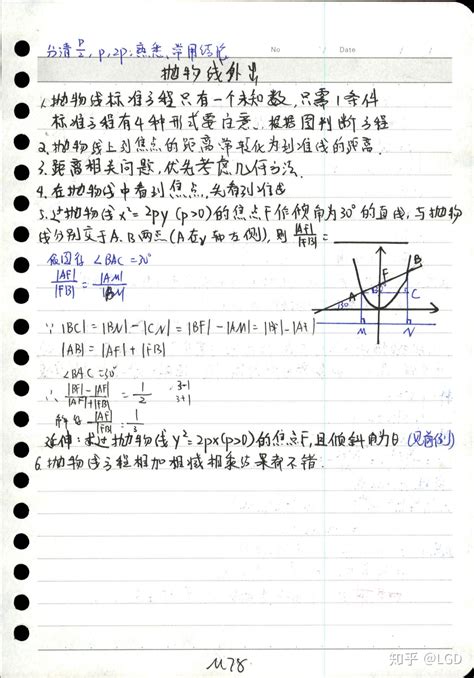 分清 p/2, p, 2p, 熟悉, 常用结论
No
Date
抛物线外出
1.抛物线标准方程只有一个未知数,只需1条件
标准方程有4种形式要注意.根据图判断方程
2.抛物线上到焦点的距离常转化为到准线的距离.
3.距离相关问题,优先考虑几何方法.
4.在抛物线中看到焦点,先看到准线
5.过抛物线x²=2py (p>0)的焦点F作倾角为30°的直线,与抛物
线分别交于A.B两点(A在y轴左侧),则 |AF|/|FB| =
∠BAC=30°
|AF|/|FB| = |AM|/|BN|
B
F
A
30°
C
M
N
∵|BC|=|BN|-|CN|=|BF|-|AM|=|BF|-|AF|
|AB|=|AF|+|FB|
∠BAC=30°
∴ (|BF|-|AF|)/(|AF|+|FB|) = 1/2
3-1
3+1
解得 |AF|/|FB| = 1/3
延伸:求过抛物线y²=2px(p>0)的焦点F,且倾斜角为θ (见前例)
6.抛物线方程相加相减相乘效果都不错.
M78
知乎 @LGD